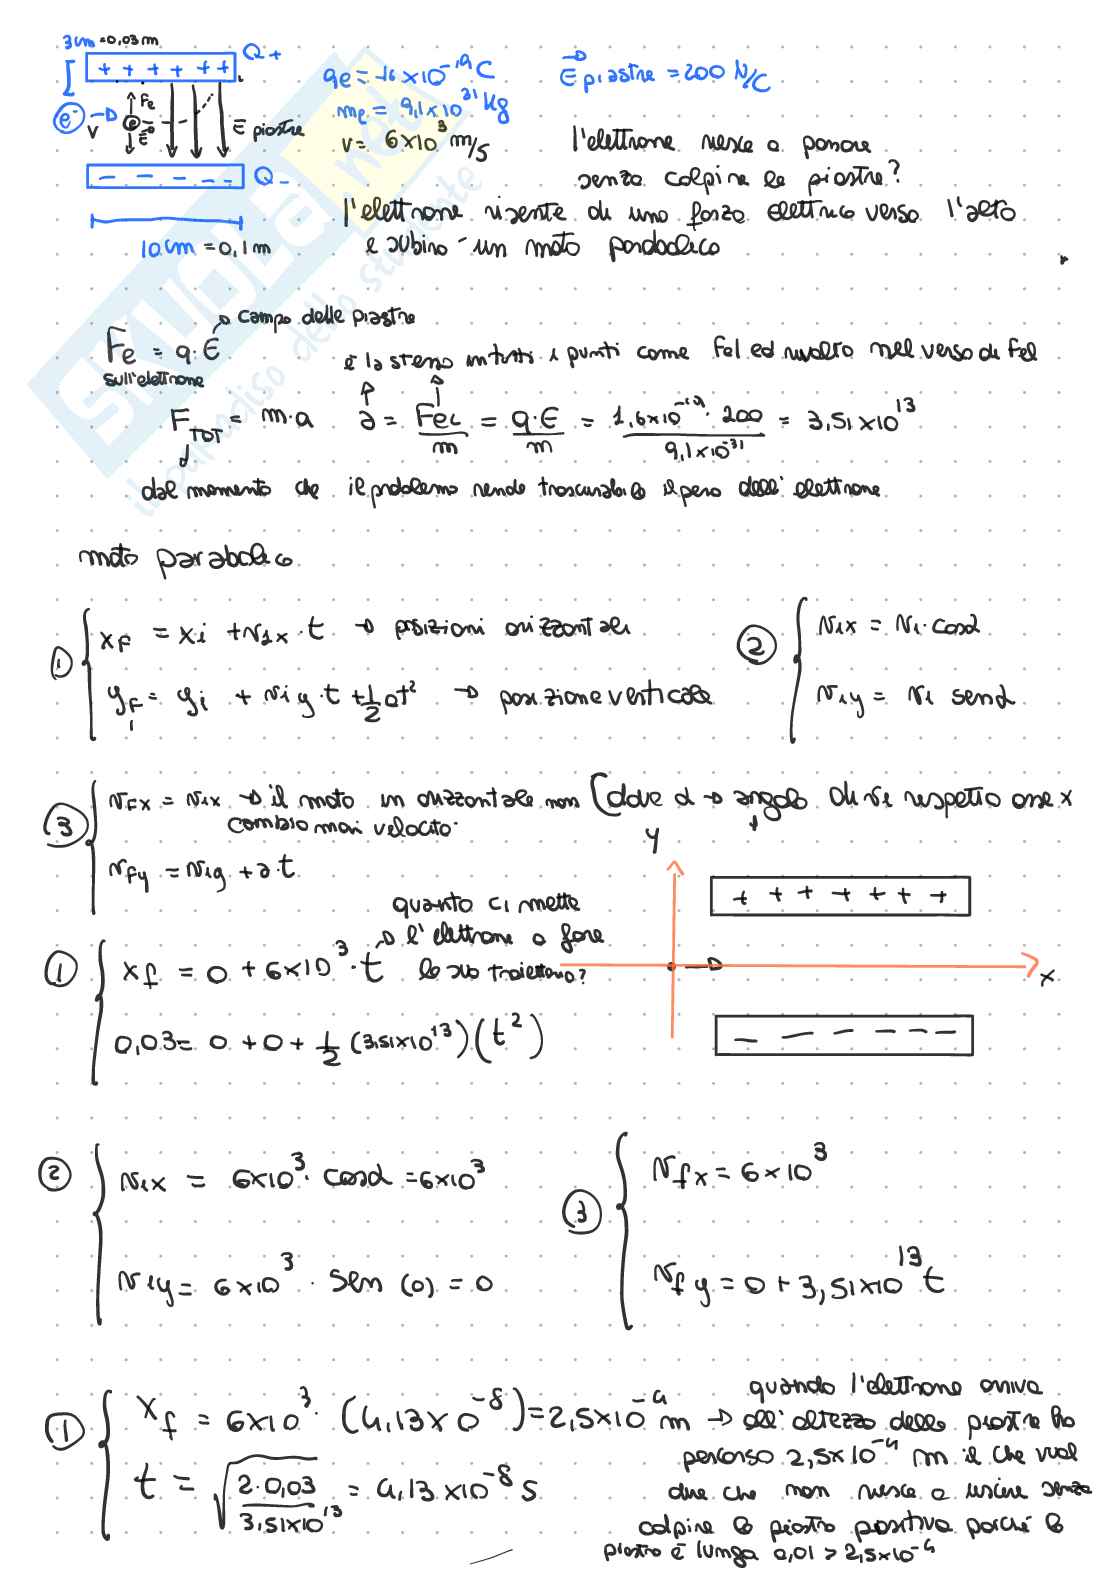 3 cm = 0,03 m
+ + + + + + Q+
qe = -1,6 × 10⁻¹⁹ C
E piastre = 200 N/C
Fe
me = 9,1 × 10³¹ kg
e⁻ → v e E E piastre
v = 6 × 10³ m/s
l'elettrone riesce a passare
− − − − − Q−
senza colpire le piastre?
l'elettrone risente di una forza elettrica verso l'alto
10 cm = 0,1 m
e subirà un moto parabolico
→ campo delle piastre
Fe = q · E
sull'elettrone
è la stessa in tutti i punti come Fel ed rivolta nel verso di Fel
F TOT = m · a
a = Fel / m = q · E / m = 1,6 × 10⁻¹⁹ · 200 / 9,1 × 10⁻³¹ = 3,51 × 10¹³
dal momento che il problema rende trascurabile il peso dell'elettrone
moto parabolico
① xF = xi + vix · t → posizioni orizzontali
yF = yi + viy · t + 1/2 at² → posizione verticale
② vix = vi · cosα
viy = vi senα
③ vfx = vix → il moto in orizzontale non
cambia mai velocità
(dove α → angolo di vi rispetto asse x
vfy = viy + a · t
y
+ + + + + + +
x
− − − − − −
quanto ci mette
→ l'elettrone a fare
la sua traiettoria?
① xf = 0 + 6×10³ · t
0,03 = 0 + 0 + 1/2 (3,51×10¹³) (t²)
② vix = 6×10³ · cosα = 6×10³
viy = 6×10³ · sen (0) = 0
③ vfx = 6 × 10³
vfy = 0 + 3,51×10¹³ t
① xf = 6×10³ · (4,13×10⁻⁸) = 2,5×10⁻⁴ m →
t = √ 2 · 0,03 / 3,51×10¹³ = 4,13 ×10⁻⁸ s
quando l'elettrone arriva
all'altezza della piastra ha
percorso 2,5×10⁻⁴ m il che vuol
dire che non riesce a uscire senza
colpire la piastra positiva perché la
piastra è lunga 0,01 > 2,5×10⁻⁴
SKUOLA.net
il paradiso dello studente